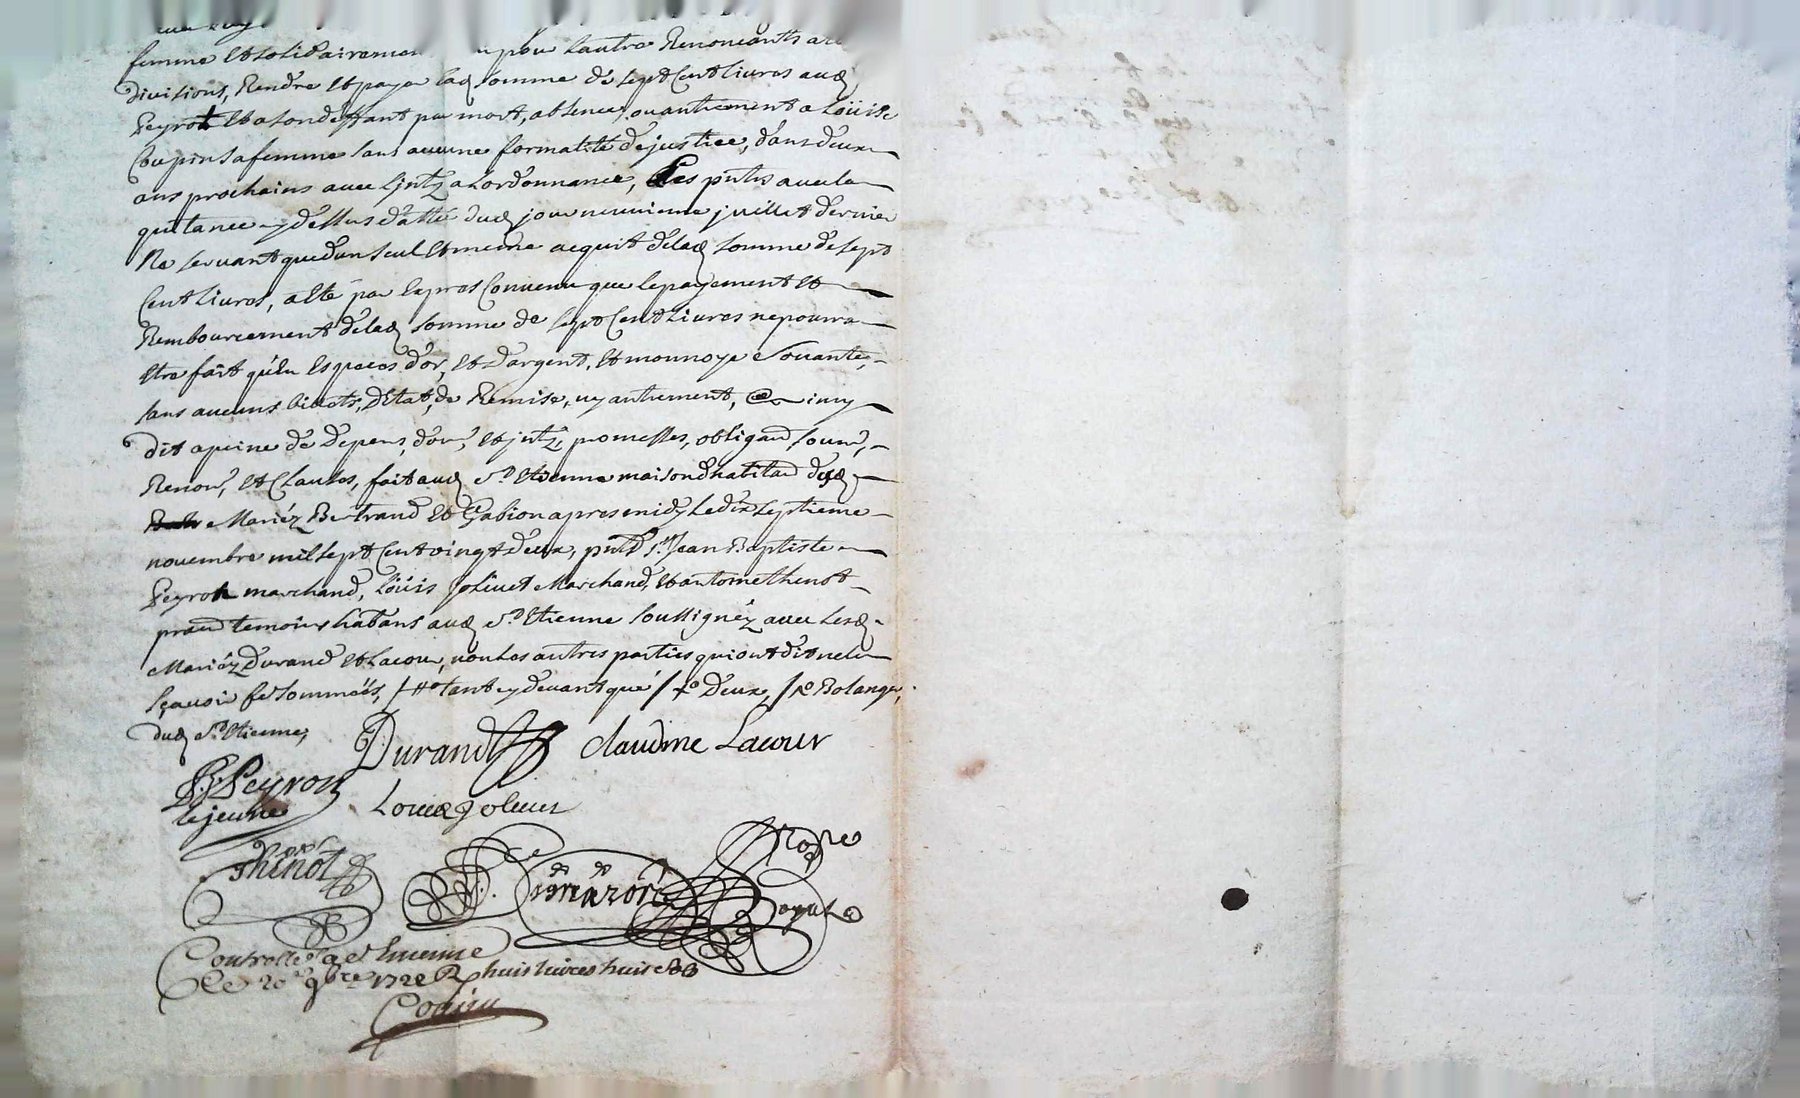 femme et solidairemen pour lautre Renoncants a
divisions, Rendre et payer lad somme de sept Cent livres aud
Peyrot et a son deffaut par mort, absence, ou autrement a Loüise
Coupin sa femme sans aucune formalité de justice, dans deux
ans prochains avec Intz a Lordonnance, Les pntes avec la
quitance cy dessus datté dud jour neuvieme juillet dernier
Ne servant que d'un seul et meme acquit de lad somme de sept
Cent livres, a esté par expres Convenu que le payement et
Remboursement de lad somme de sept Cent Livres ne pourra
Etre fait qu'En Especes d'or, et d'argent, et monnoye Sonante,
sans aucuns billets, d'Etat, de Remise, ny autrement,
dit a peine de depens, et intz, promesses, obligaõ soum,
Renon, et Clauses, fait aud St Etienne maison d'habitaõ desd
Mariéz Bertrand et Gabion apres midy Le dix septieme
novembre mil sept Cent vingt deux, pnts sr Jean Baptiste
Peyron marchand, Loüis Jolivet Marchand, et antoine thenot
pratt temoins habitans aud St Etienne soussignéz avec Lesd
Mariéz Durand et Lacour, non Les autres parties qui ont dit ne le
sçavoir de sommées, / tant cy devant que / Deux, / Bolanger,
dud St Etienne,
Durand Claudine Lacour
B. Peyron
le jeune Louis Jolivet
Thenot
Nore
Royale
Controllé a St Etienne
Le 20e 9bre 1722 R huit livres huit s